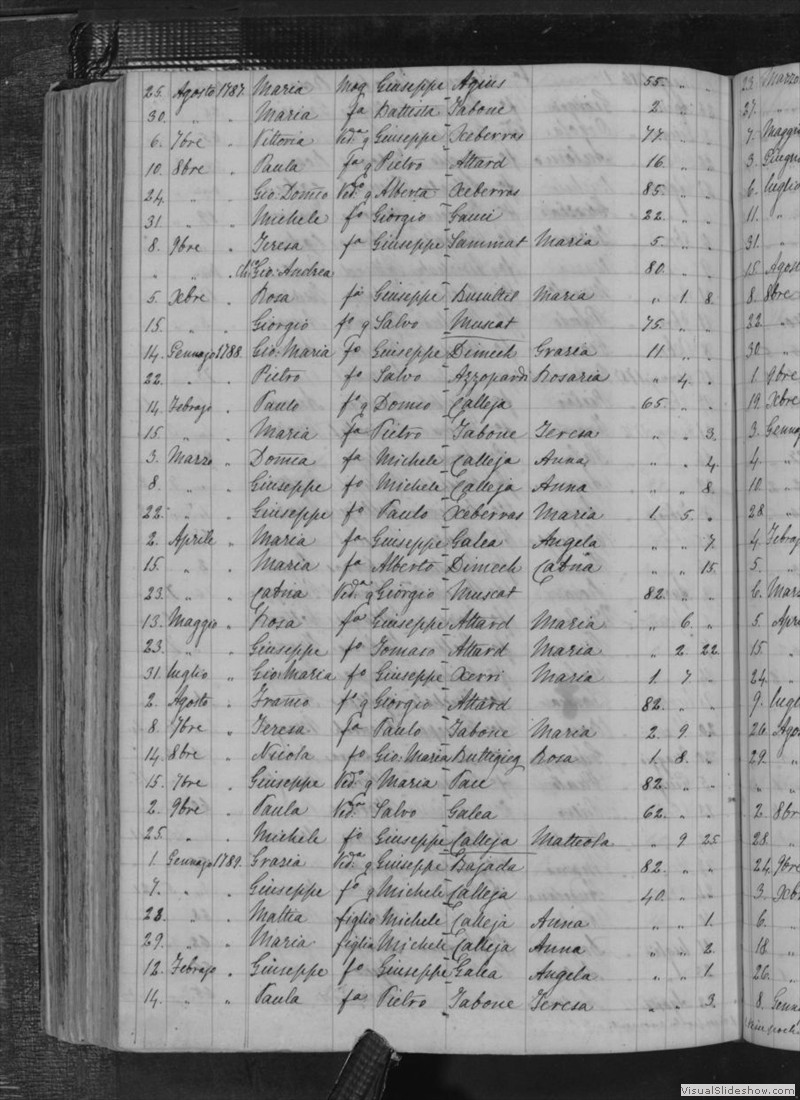 25. Agosto 1787. Maria mog Giuseppe Agius 55. " "
30. " " Maria fa Battista Tabone 2. " "
6. 7bre " Vittoria Veda q Giuseppe Xeberras 77. " "
10. 8bre " Paula fa q Pietro Attard 16. " "
24. " " Gio: Domco Vedo q Alberta Xeberras 85. " "
31. " " Michele fo Giorgio Gauci 22. " "
8. 9bre " Teresa fa Giuseppe Sammut Maria 5. " "
" " " Gio: Andrea 80. " "
5. Xbre " Rosa fa Giuseppe Busuttil Maria " 1 8
15. " " Giorgio fo q Salvo Muscat 75. " "
14. Gennajo 1788. Gio: Maria fo Giuseppe Dimech Grazia 11. " "
22. " " Pietro fo Salvo Azzopardi Rosaria " 4. "
14. Febrajo " Paulo fo q Domco Calleja 65. " "
15. " " Maria fa Pietro Tabone Teresa " " 3.
3. Marzo " Domca fa Michele Calleja Anna " " 4.
8. " " Giuseppe fo Michele Calleja Anna " " 8.
22. " " Giuseppe fo Paulo Xeberras Maria 1. 5. "
2. Aprile " Maria fa Giuseppe Galea Angela " " 7.
15. " " Maria fa Alberto Dimech Catna " " 15.
23. " " Catna Veda q Giorgio Muscat 82. " "
13. Maggio " Rosa fa Giuseppe Attard Maria " 6. "
23. " " Giuseppe fo Tomaso Attard Maria " 2. 22.
31. luglio " Gio: Maria fo Giuseppe Xerri Maria 1. 7. "
2. Agosto " Franco fo q Giorgio Attard 82. " "
8. 7bre " Teresa fa Paulo Tabone Maria 2. 9. "
14. 8bre " Nicola fo Gio: Maria Buttigieg Rosa 1. 8. "
15. 7bre " Giuseppe Vedo q Maria Pau 82. " "
2. 9bre " Paula Veda Salvo Galea 62. " "
25. " " Michele fo Giuseppe Calleja Matteola " 9 25
1. Gennajo 1789. Grazia Veda q Giuseppe Bajada 82. " "
7. " " Giuseppe fo q Michele Calleja 40. " "
28. " " Mattia figlio Michele Calleja Anna " " 1.
29. " " Maria figlia Michele Calleja Anna " " 2.
12. Febrajo " Giuseppe fo Giuseppe Galea Angela " " 1.
14. " " Paula fa Pietro Tabone Teresa " " 3.
23. Marzo
27. "
7. Maggio
3. Giugno
6. luglio
11. "
31. "
15. Agosto
8. 8bre
22. "
30 "
1. 9bre
19. Xbre
3. Genna
4. "
10. "
28. "
4. Febraj
5. "
6. Marz
5. Apri
15. "
24. "
9. lugl
26. Agos
29. "
" "
2. 8br
28. "
24. 9bre
3. Xbr
6. "
18. "
26. "
8. Genna
VisualSlideshow.com